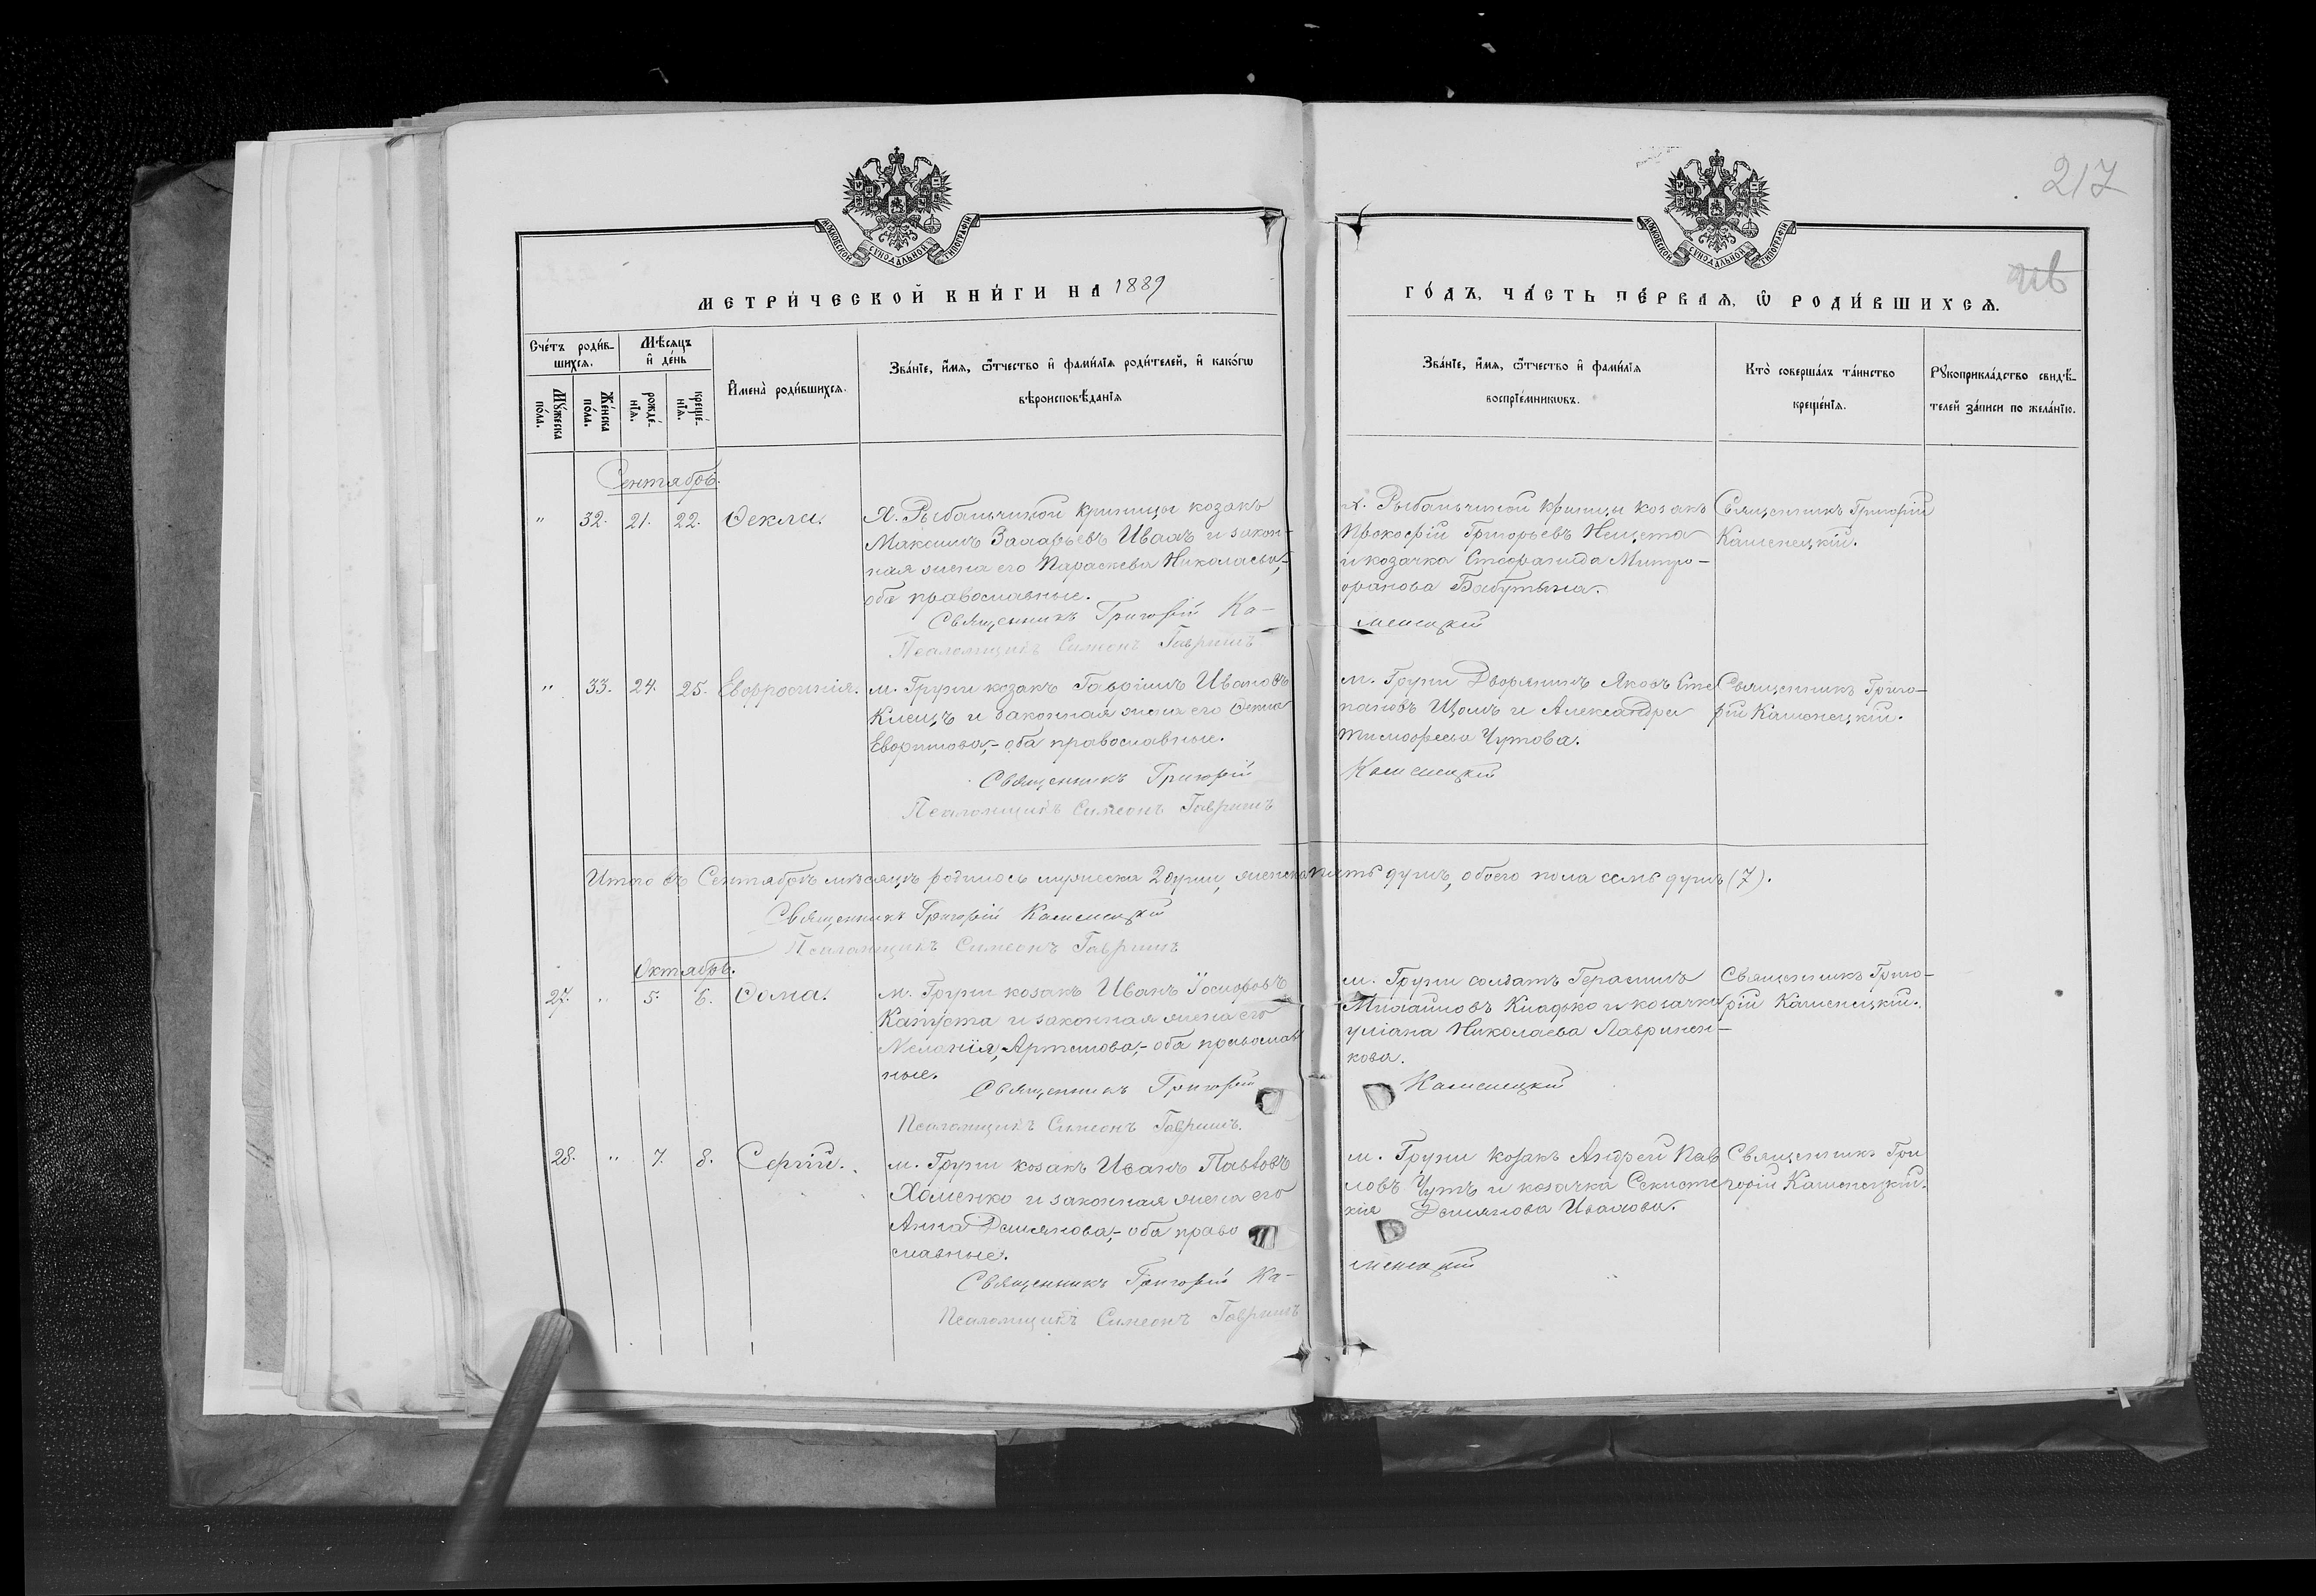 217
МОСКОВСКОЙ СѴНОДАЛЬНОЙ ТИПОГРАФІИ
МОСКОВСКОЙ СѴНОДАЛЬНОЙ ТИПОГРАФІИ
МЕТРИ́ЧЕСКОЙ КНИ́ГИ НА 1889
ГО́ДЪ, ЧА́СТЬ ПЕ́РВАѦ, Ѽ РОДИ́ВШИХСѦ.
Сче́тъ роди́в-
шихсѧ.
Мꙋ́жеска по́ла.
Же́нска по́ла.
Мѣ́сѧцъ и҆ де́нь
рожде́-нїѧ.
креще́-нїѧ.
И҆мена̀ роди́вшихсѧ.
Зва́нїе, и҆́мѧ, ѻ҆́тчество и҆ фами́лїѧ роди́телей, и҆ како́гѡ
вѣроисповѣ́данїѧ
Зва́нїе, и҆́мѧ, ѻ҆́тчество и҆ фами́лїѧ
воспрїе́мникѡвъ.
Кто̀ соверша́лъ та́инство
креще́нїѧ.
Рꙋкоприкла́дство свидѣ́-
телей за́писи по жела́нїю.
Сентябрь.
" 32. 21. 22. Ѳекла.
Х. Рыбальчиной Криницы козакъ
Максимъ Захарьевъ Ивахъ и закон-
ная жена его Параскева Николаева,-
оба православные.
Священникъ Григорій Ка-
менецкій
Псаломщикъ Симеонъ Гавришъ
х. Рыбальчиной Криницы козакъ
Прокофій Григорьевъ Нещета
и козачка Стефанида Митро-
фанова Бабутына.
Священникъ Григорій
Каменецкій.
" 33. 24. 25. Евфросинія.
м. Груни козакъ Гавріилъ Ивановъ
Клецъ и законная жена его Ѳекла
Евфимова,- оба православные.
Священникъ Григорій
Каменецкій
Псаломщикъ Симеонъ Гавришъ
м. Груни Дворянинъ Яковъ Сте
пановъ Щомъ и Александра
Тимофеева Чутова.
Священникъ Григо-
рій Каменецкій.
Итого въ Сентябрѣ мѣсяцѣ родилось мужеска 2 души, женска пять душъ, обоего пола семь душъ (7).
Священникъ Григорій Каменецкій
Псаломщикъ Симеонъ Гавришъ
Октябрь.
27. " 5. 6. Ѳома.
м. Груни козакъ Иванъ Іосифовъ
Капуста и законная жена его
Меланія Артемова,- оба православ
ные.
Священникъ Григорій
Каменецкій
Псаломщикъ Симеонъ Гавришъ.
м. Груни солдатъ Герасимъ
Михайловъ Кладько и козачка
уліана Николаева Лавринен-
кова.
Священникъ Григо-
рій Каменецкій.
28. " 7. 8. Сергій.
м. Груни козакъ Иванъ Павловъ
Хоменко и законная жена его
Анна Демянова,- оба право
славные.
Священникъ Григорій Ка-
менецкій
Псаломщикъ Симеонъ Гавришъ
м. Груни козакъ Андрей Пав
ловъ Чутъ и козачка
Демянова Ивахова.
Священникъ Гри
горій Каменецкій.